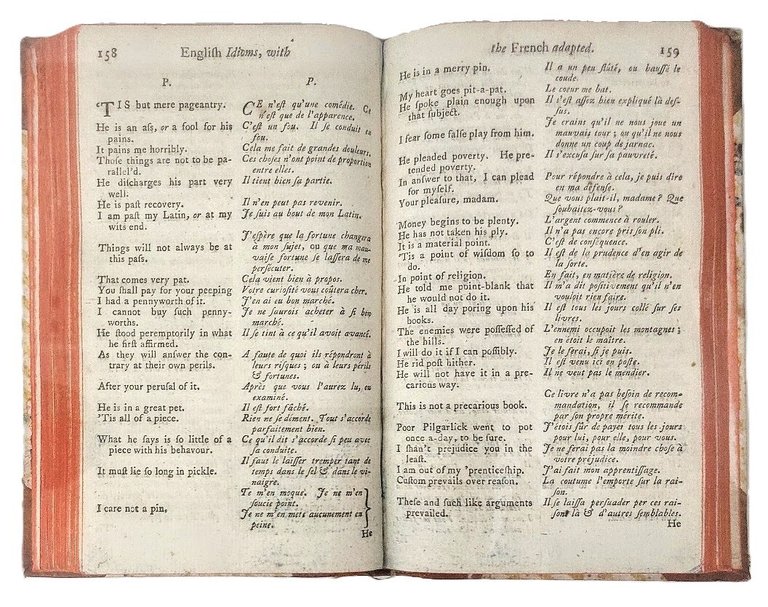 158 English Idioms, with
P. P.
'TIS but mere pageantry.
He is an ass, or a fool for his
pains.
It pains me horribly.
Those things are not to be pa-
rallel'd.
He discharges his part very
well.
He is past recovery.
I am past my Latin, or at my
wits end.
Things will not always be at
this pass.
That comes very pat.
You shall pay for your peeping
I had a pennyworth of it.
I cannot buy such penny-
worths.
He stood peremptorily in what
he first affirmed.
As they will answer the con-
trary at their own perils.
After your perusal of it.
He is in a great pet.
'Tis all of a piece.
What he says is so little of a
piece with his behavour.
It must lie so long in pickle.
I care not a pin,
CE n'est qu'une comédie. Ce
n'est que de l'apparence.
C'est un fou. Il se conduit en
fou.
Cela me fait de grandes douleurs.
Ces choses n'ont point de proportion
entre elles.
Il tient bien sa partie.
Il n'en peut pas revenir.
Je suis au bout de mon Latin.
J'espère que la fortune changera
à mon sujet, ou que ma mau-
vaise fortune se lassera de me
persecuter.
Cela vient bien à propos.
Votre curiosité vous coûtera cher.
J'en ai eu bon marché.
Je ne saurois acheter à si bon
marché.
Il se tint à ce qu'il avoit avancé.
A faute de quoi ils répondront à
leurs risques; ou à leurs périls
& fortunes.
Après que vous l'aurez lu, ou
examiné.
Il est fort fâché.
Rien ne se dément. Tout s'accorde
parfaitement bien.
Ce qu'il dit s'accorde si peu avec
sa conduite.
Il faut le laisser tremper tant de
temps dans le sel & dans le vi-
naigre.
Je m'en moque. Je ne m'en
soucie point.
Je ne m'en mets aucunement en
peine.
He
the French adapted. 159
He is in a merry pin.
My heart goes pit-a-pat.
He spoke plain enough upon
that subject.
I fear some false play from him.
He pleaded poverty. He pre-
tended poverty.
In answer to that, I can plead
for myself.
Your pleasure, madam.
Money begins to be plenty.
He has not taken his ply.
It is a material point.
'Tis a point of wisdom so to
do.
In point of religion.
He told me point-blank that
he would not do it.
He is all day poring upon his
books.
The enemies were possessed of
the hills.
I will do it if I can possibly.
He rid post hither.
He will not have it in a pre-
carious way.
This is not a precarious book.
Poor Pilgarlick went to pot
once a-day, to be sure.
I shan't prejudice you in the
least.
I am out of my 'prenticeship.
Custom prevails over reason.
These and such like arguments
prevailed.
Il a un peu flûté, ou haussé le
coude.
Le coeur me bat.
Il s'est assez bien expliqué là des-
sus.
Je crains qu'il ne nous joue un
mauvais tour; ou qu'il ne nous
donne un coup de jarnac.
Il s'excusa sur sa pauvreté.
Pour répondre à cela, je puis dire
en ma défense.
Que vous plait-il, madame? Que
souhaitez-vous?
L'argent commence à rouler.
Il n'a pas encore pris son pli.
C'est de conséquence.
Il est de la prudence d'en agir de
la sorte.
En fait, en matière de religion.
Il m'a dit positivement qu'il n'en
vouloit rien faire.
Il est tous les jours collé sur ses
livres.
L'ennemi occupoit les montagnes;
en étoit le maître.
Je le ferai, si je puis.
Il est venu ici en poste.
Il ne veut pas le mendier.
Ce livre n'a pas besoin de recom-
mandation, il se recommande
par son propre mérite.
J'étois sûr de payer tous les jours
pour lui, pour elle, pour vous.
Je ne ferai pas la moindre chose à
votre préjudice.
J'ai fait mon apprentissage.
La coutume l'emporte sur la rai-
son.
Il se laissa persuader per ces rai-
sons là & d'autres semblables.
He